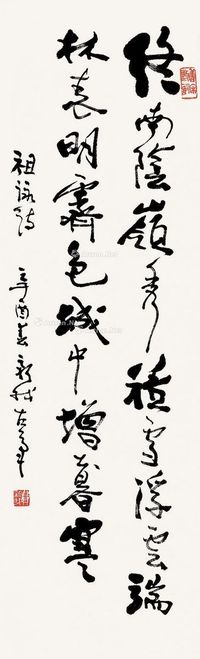 終南陰嶺秀積雪浮雲端
林表明霽色城中增暮寒
祖詠詩 辛酉春新我左筆